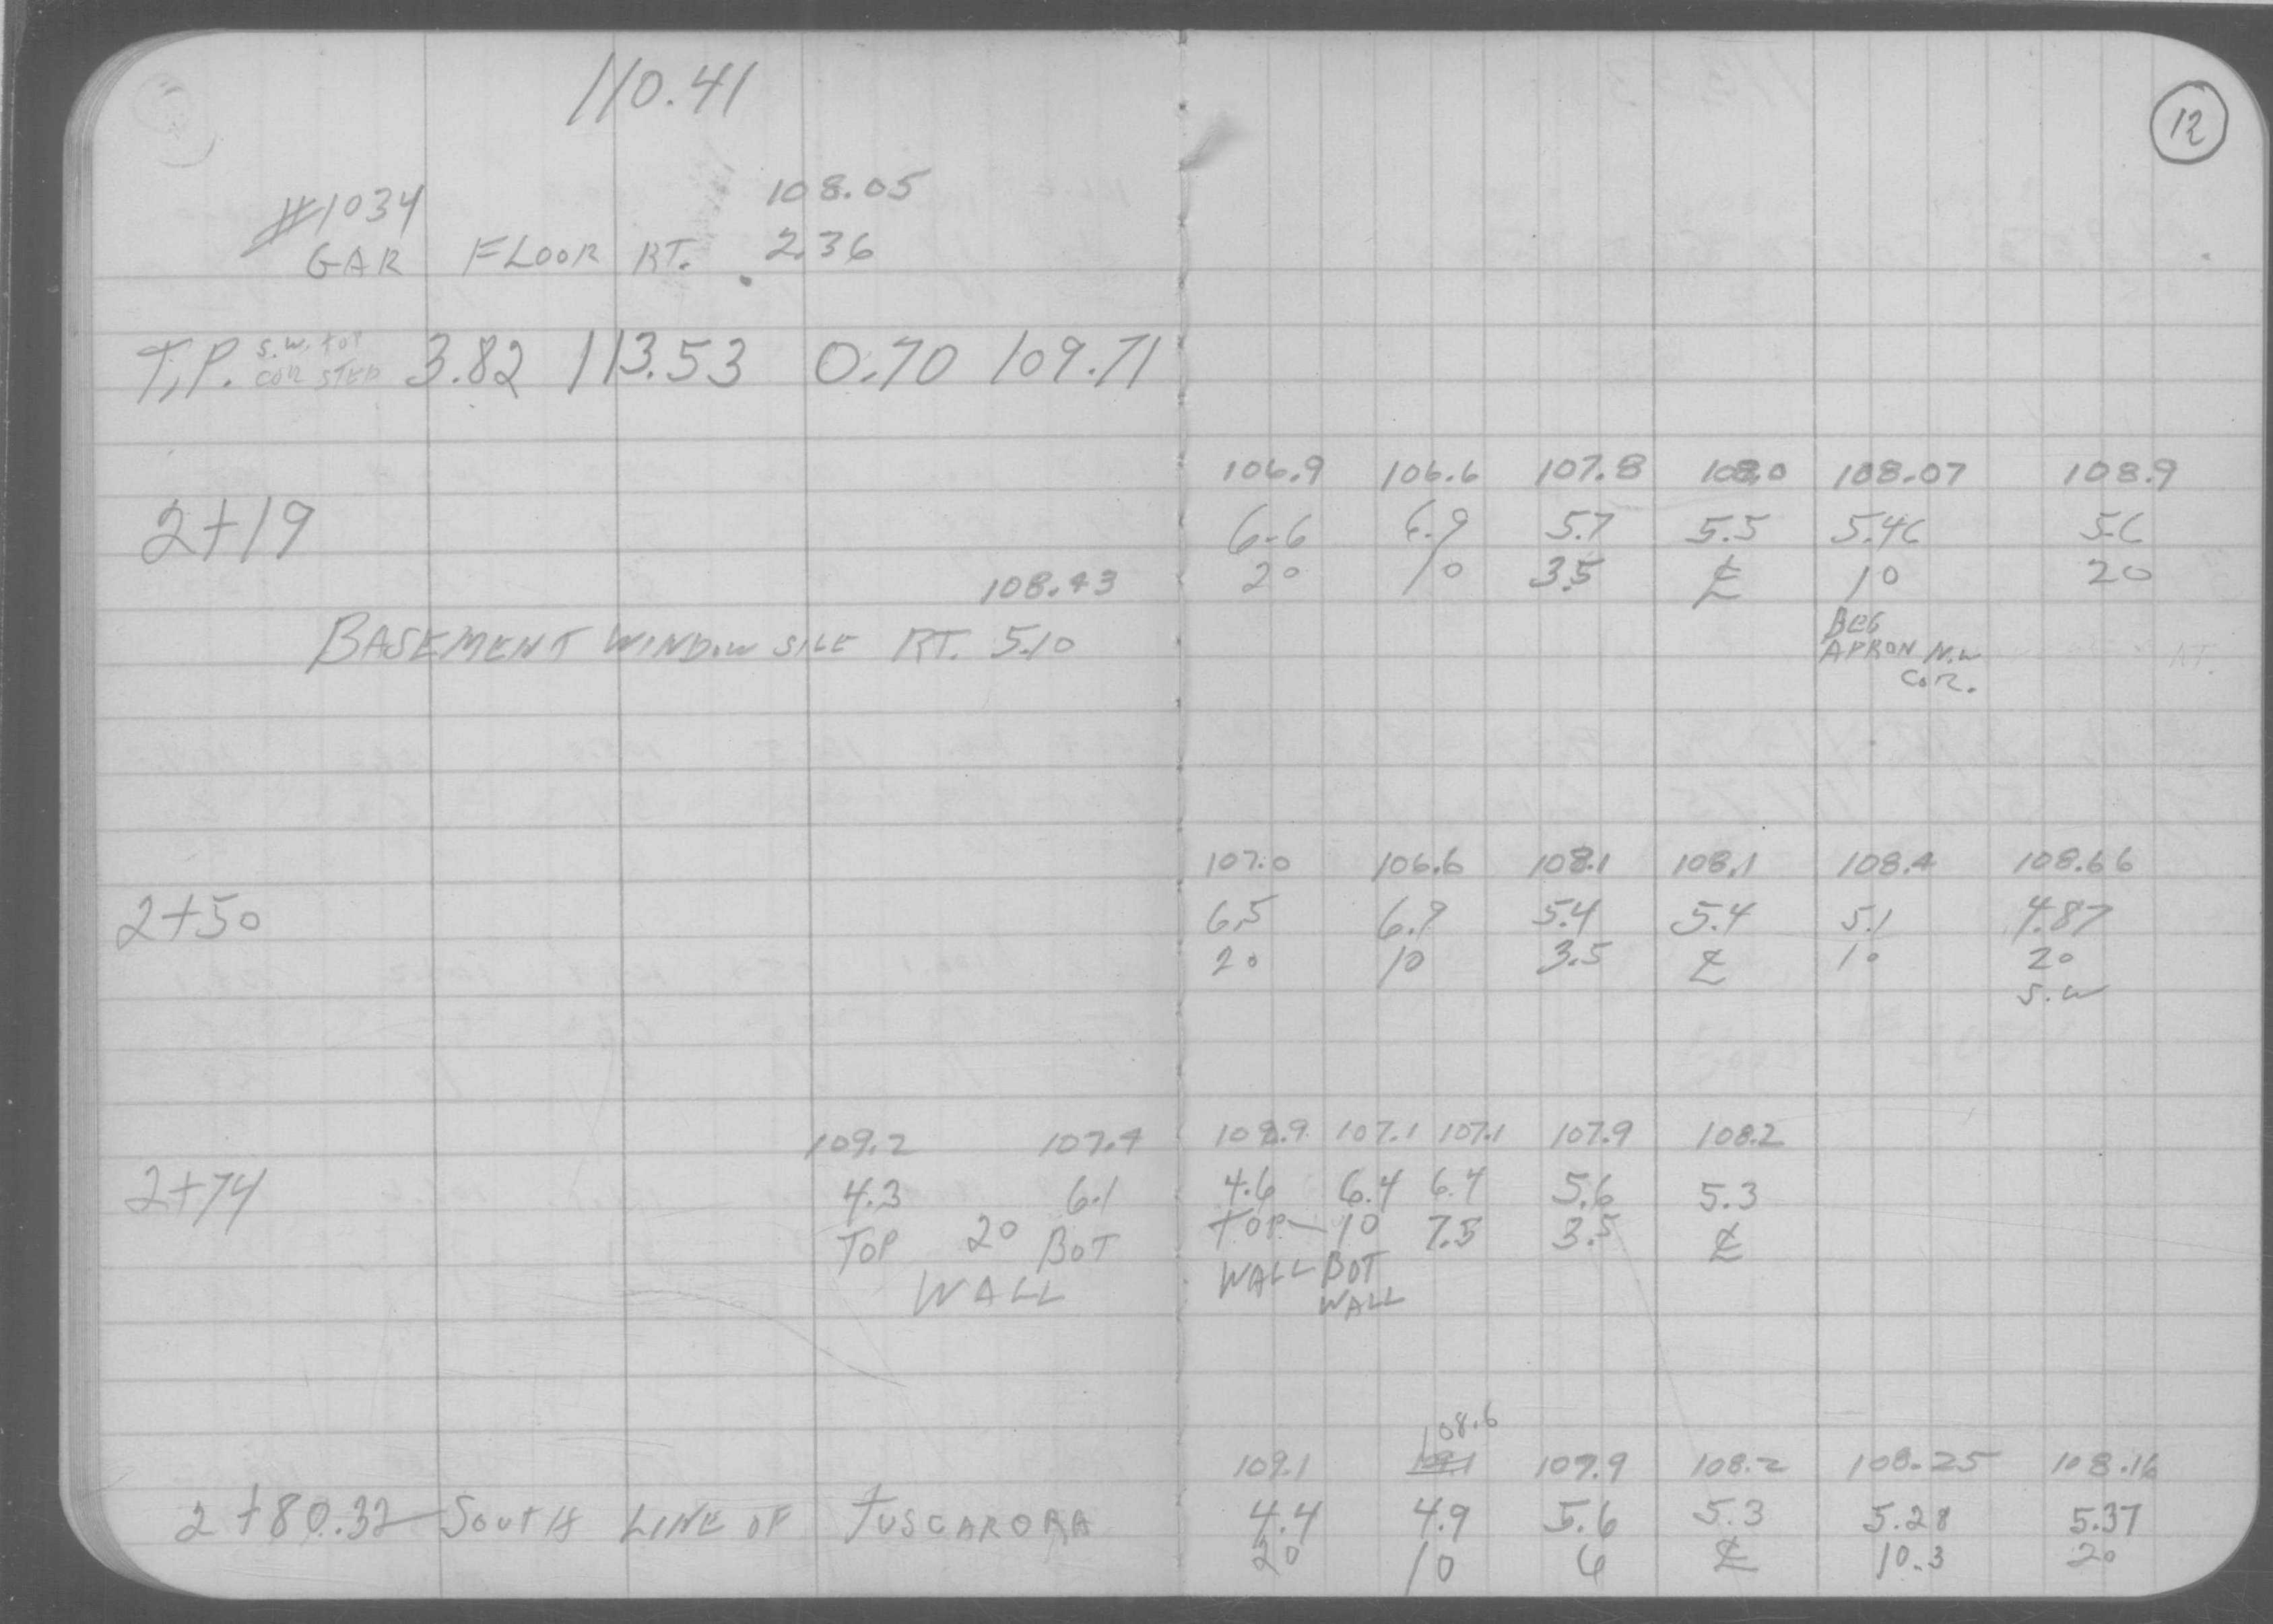 110.41
12
108.05
#1034
GAR FLOOR RT. 2.36
T.P. S.W. TOP COR STEP 3.82 113.53 0.70 109.71
106.9 106.6 107.8 108.0 108.07 108.9
2+19 6.6 6.9 5.7 5.5 5.46 5.6
20 10 3.5 ℄ 10 20
108.43
BASEMENT WINDOW SILE RT. 5.10
BEG
APRON N.W
COR.
107.0 106.6 108.1 108.1 108.4 108.66
2+50 6.5 6.9 5.4 5.4 5.1 4.87
20 10 3.5 ℄ 10 20
S.W
109.2 107.4 108.9 107.1 107.1 107.9 108.2
2+74 4.3 6.1 4.6 6.4 6.4 5.6 5.3
TOP 20 BOT TOP 10 7.5 3.5 ℄
WALL WALL BOT
WALL
108.6
109.1 109.1 107.9 108.2 108.25 108.16
2+80.32 SOUTH LINE OF TUSCARORA 4.4 4.9 5.6 5.3 5.28 5.37
20 10 6 ℄ 10.3 20